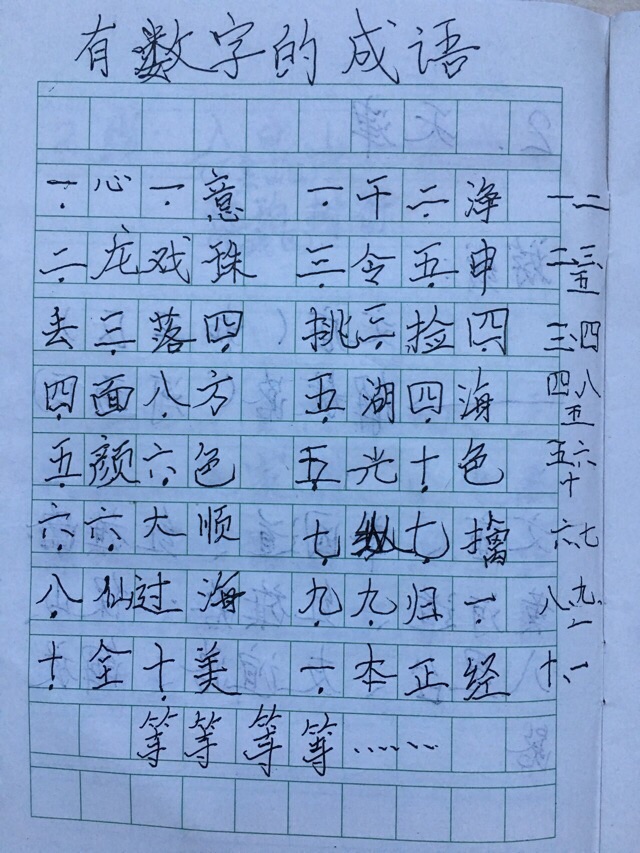 有数字的成语
一心一意 一干二净 一二
二龙戏珠 三令五申 二三五
丢三落四 挑三捡四 三四
四面八方 五湖四海 四八五
五颜六色 五光十色 五六十
六六大顺 七纵七擒 六七
八仙过海 九九归一 八九一
十全十美 一本正经 十一
等等等等……